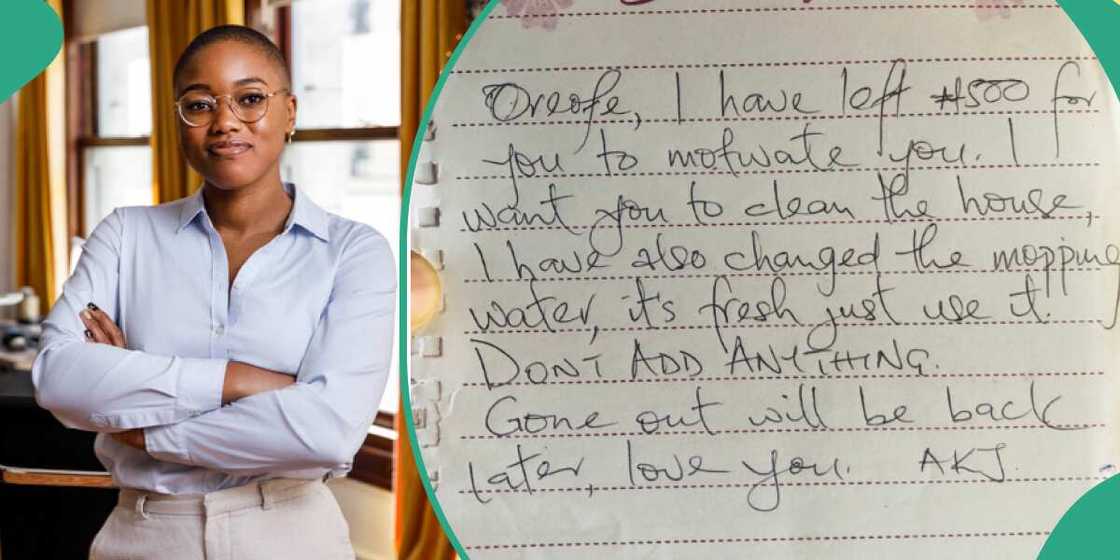 Oreofe, I have left ₦500 for
you to motivate you. I
want you to clean the house,
I have also changed the mopping
water, it's fresh just use it.
DON'T ADD ANYTHING.
Gone out will be back
later, love you. AKJ.